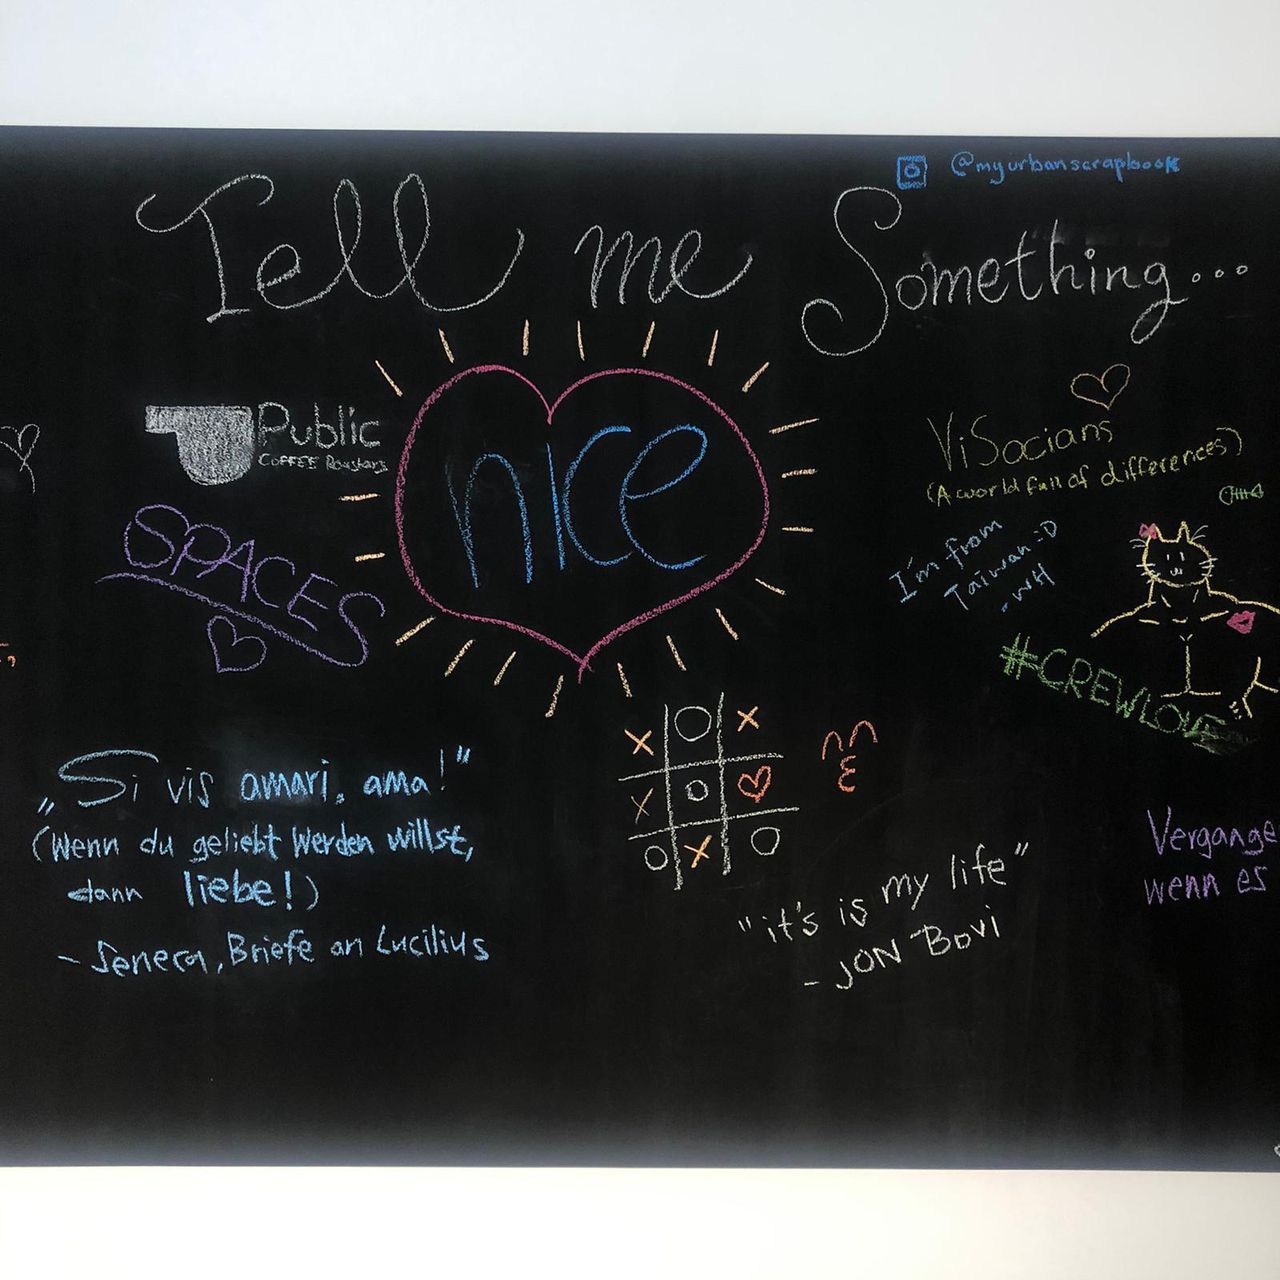 @myurbanscrapbook
Tell me Something...
nice
Public
COFFEE Roasters
SPACES
ViSocians
(A world full of differences)
I'm from
Taiwan :D
. WH
#CREWLOVE
X O X
X O
O X O
„Si vis amari, ama!"
(Wenn du geliebt werden willst,
dann liebe!)
- Seneca, Briefe an Lucilius
"it's is my life"
- JON BOVI
Vergange
wenn es